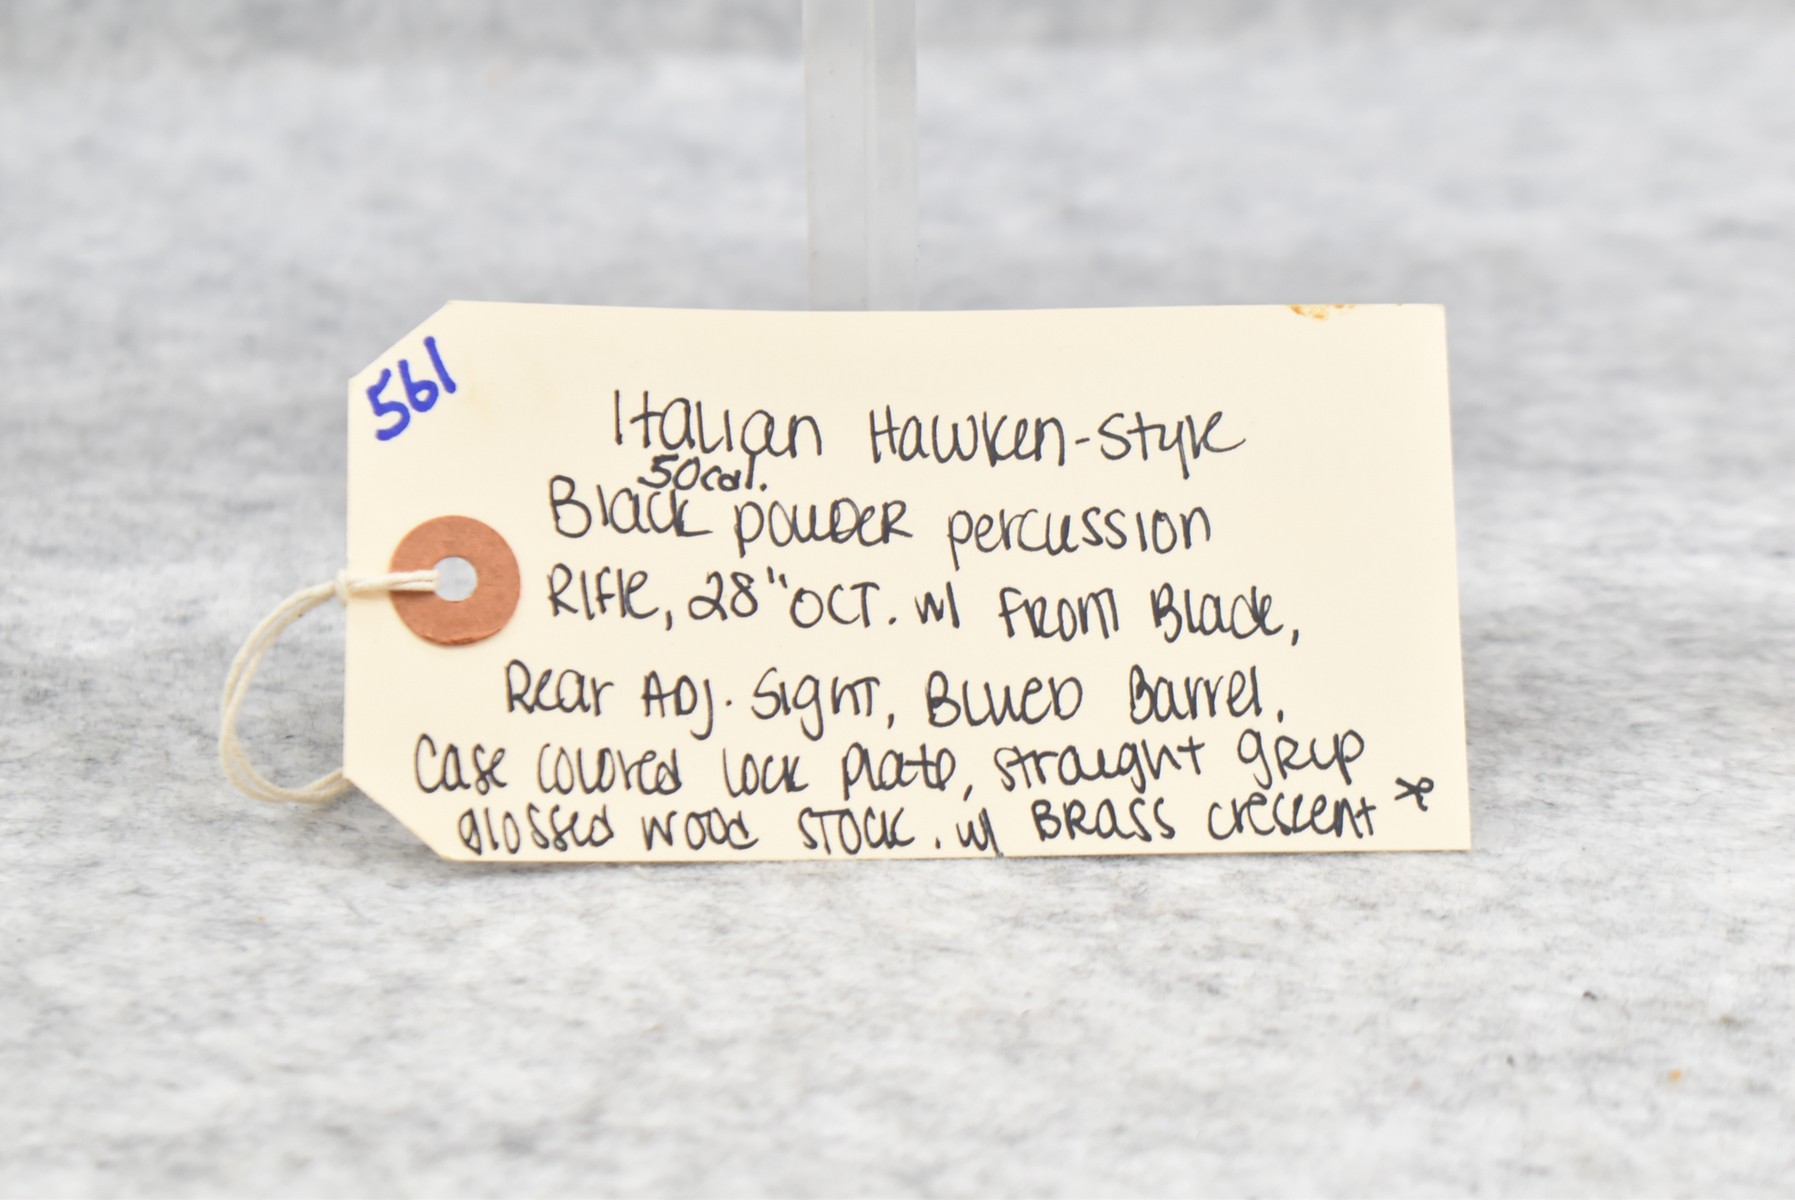 561
Italian Hawken-Style
50cal.
Black powder percussion
Rifle, 28" OCT. w/ Front Blade,
Rear ADJ. Sight, Blued Barrel.
Case colored lock plate, straight grip
glossed wood stock. w/ Brass crescent *